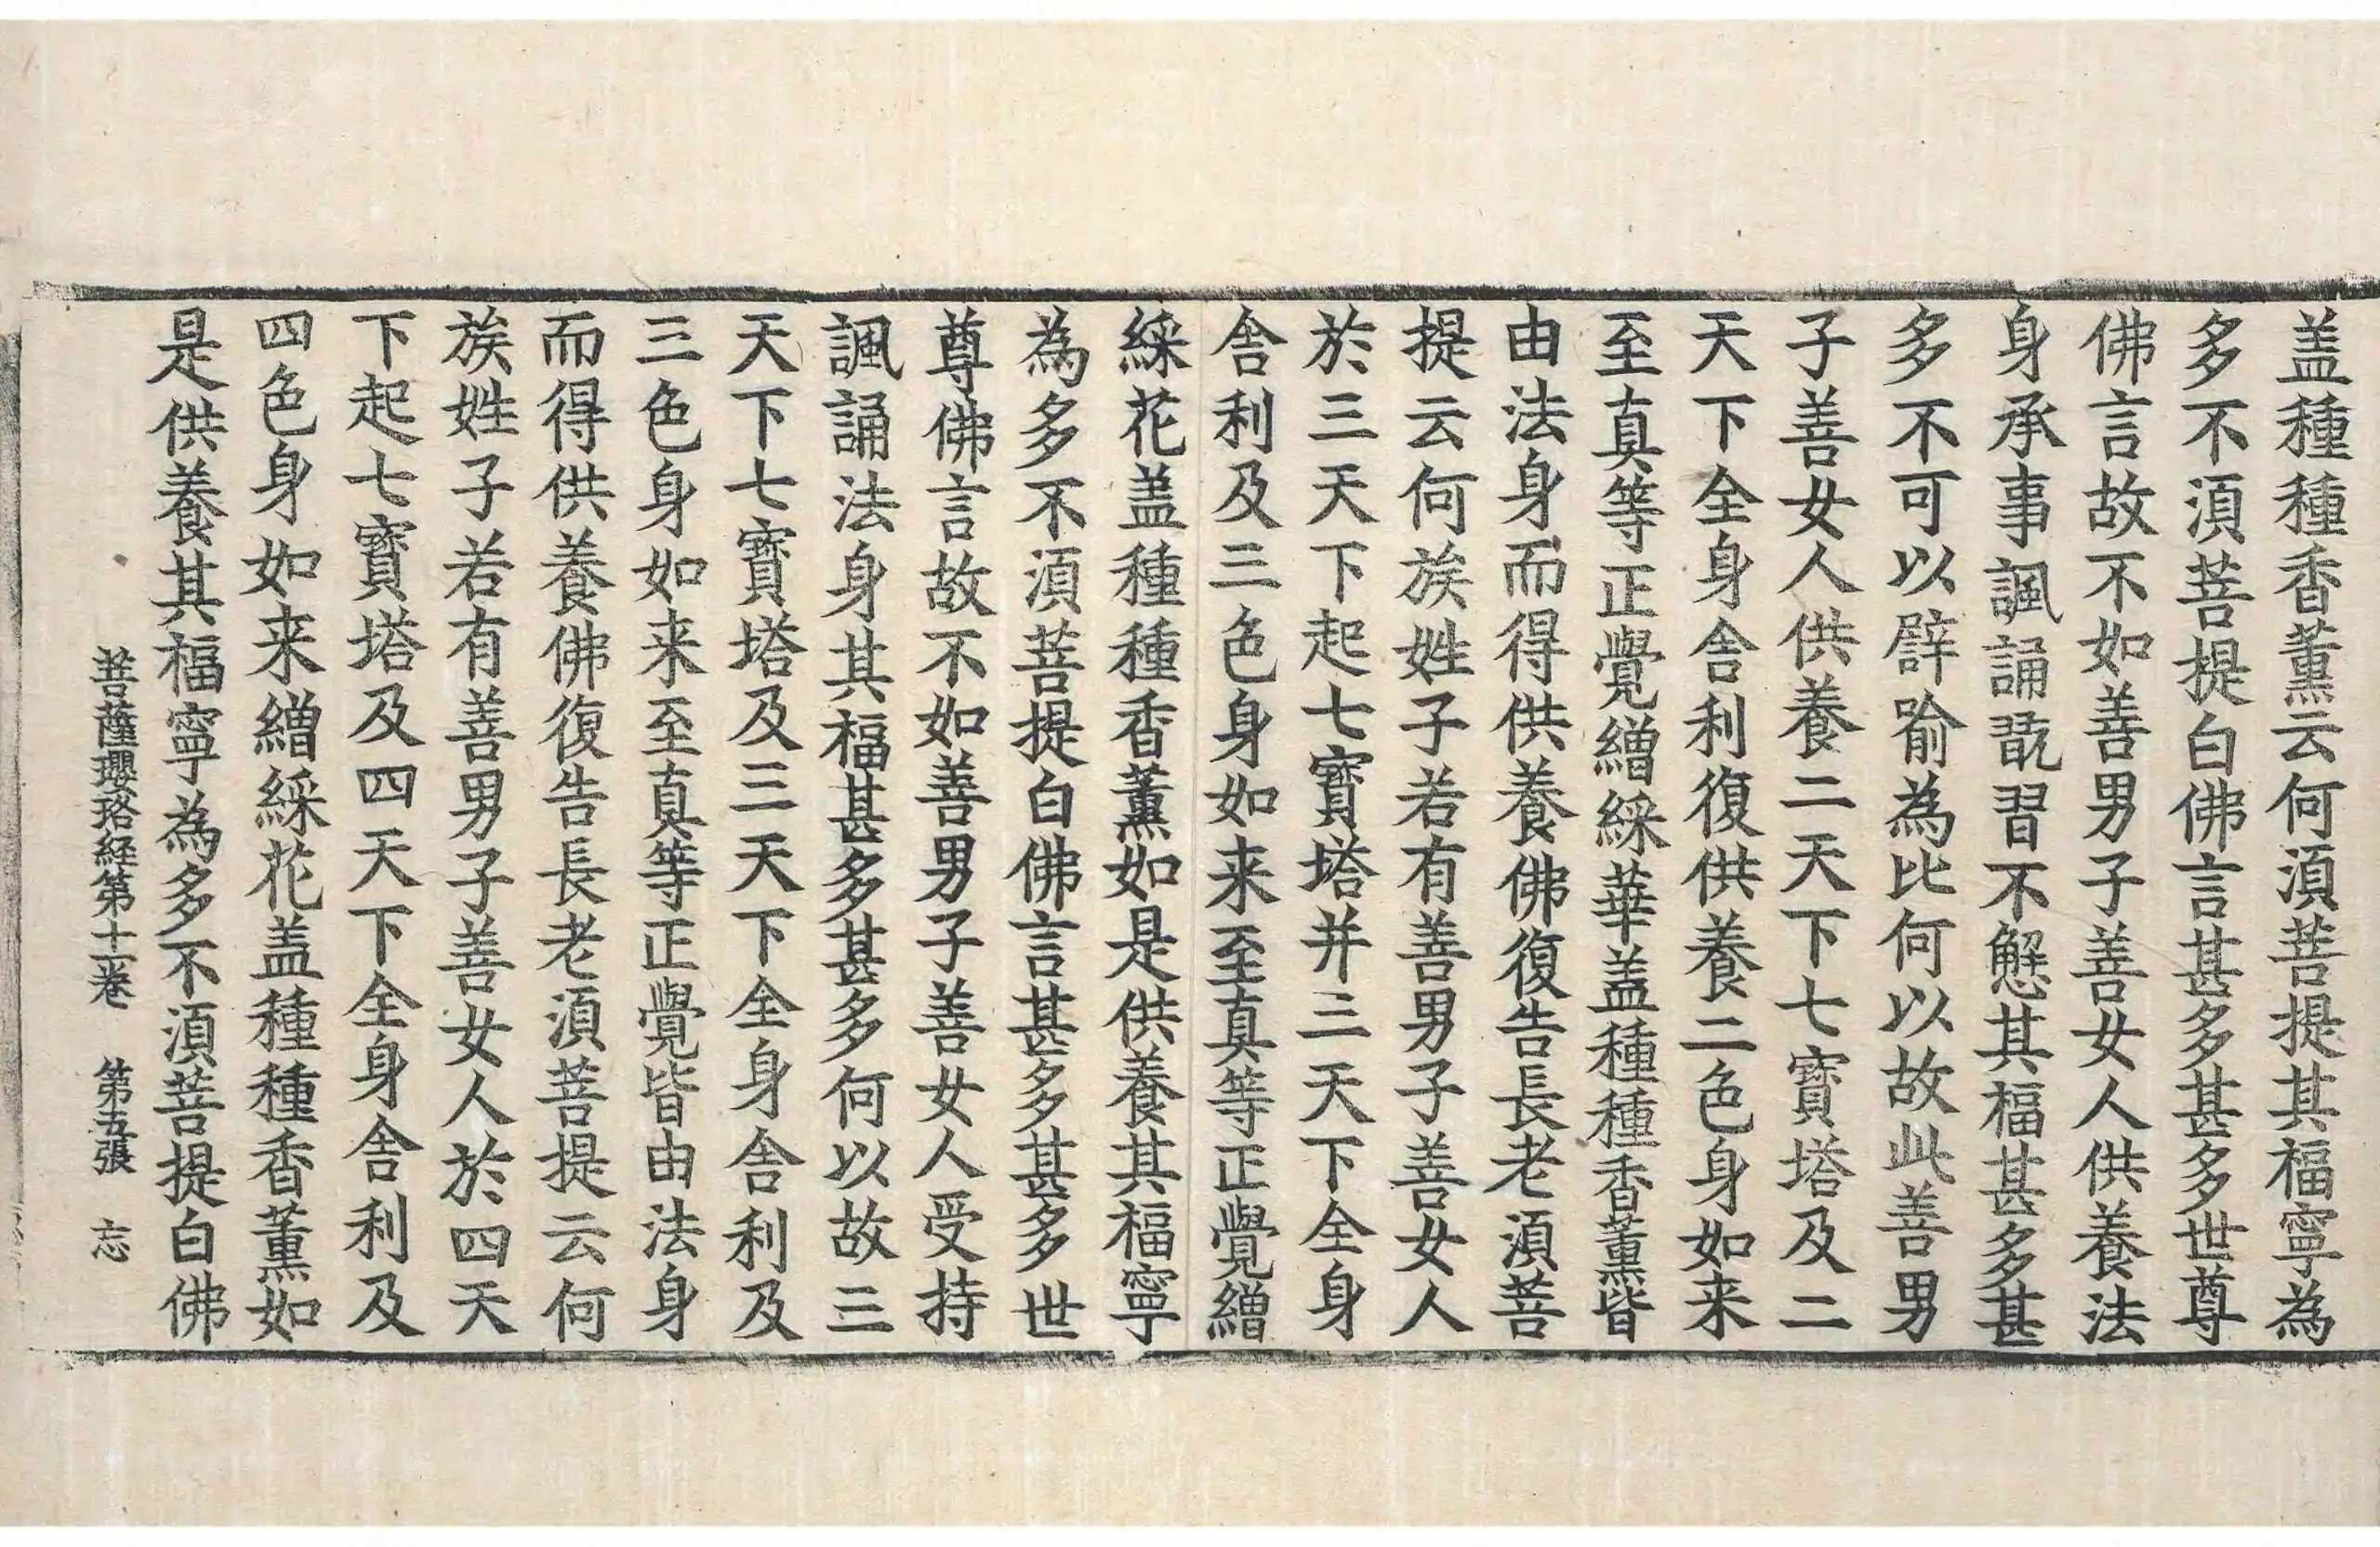 盖種種香薰云何湏菩提其福寧為
多不湏菩提白佛言甚多甚多世尊
佛言故不如善男子善女人供養法
身承事諷誦翫習不懈其福甚多甚
多不可以辟喻為比何以故此善男
子善女人供養二天下七寳塔及二
天下全身舎利復供養二色身如来
至真等正覺繒綵華盖種種香薰皆
由法身而得供養佛復告長老湏菩
提云何族姓子若有善男子善女人
於三天下起七寳塔并三天下全身
舎利及三色身如来至真等正覺繒
綵花盖種種香薰如是供養其福寧
為多不湏菩提白佛言甚多甚多世
尊佛言故不如善男子善女人受持
諷誦法身其福甚多甚多何以故三
天下七寳塔及三天下全身舎利及
三色身如来至真等正覺皆由法身
而得供養佛復告長老湏菩提云何
族姓子若有善男子善女人於四天
下起七寳塔及四天下全身舎利及
四色身如来繒綵花盖種種香薰如
是供養其福寧為多不湏菩提白佛
菩薩瓔珞経第十一卷 第五張 忘